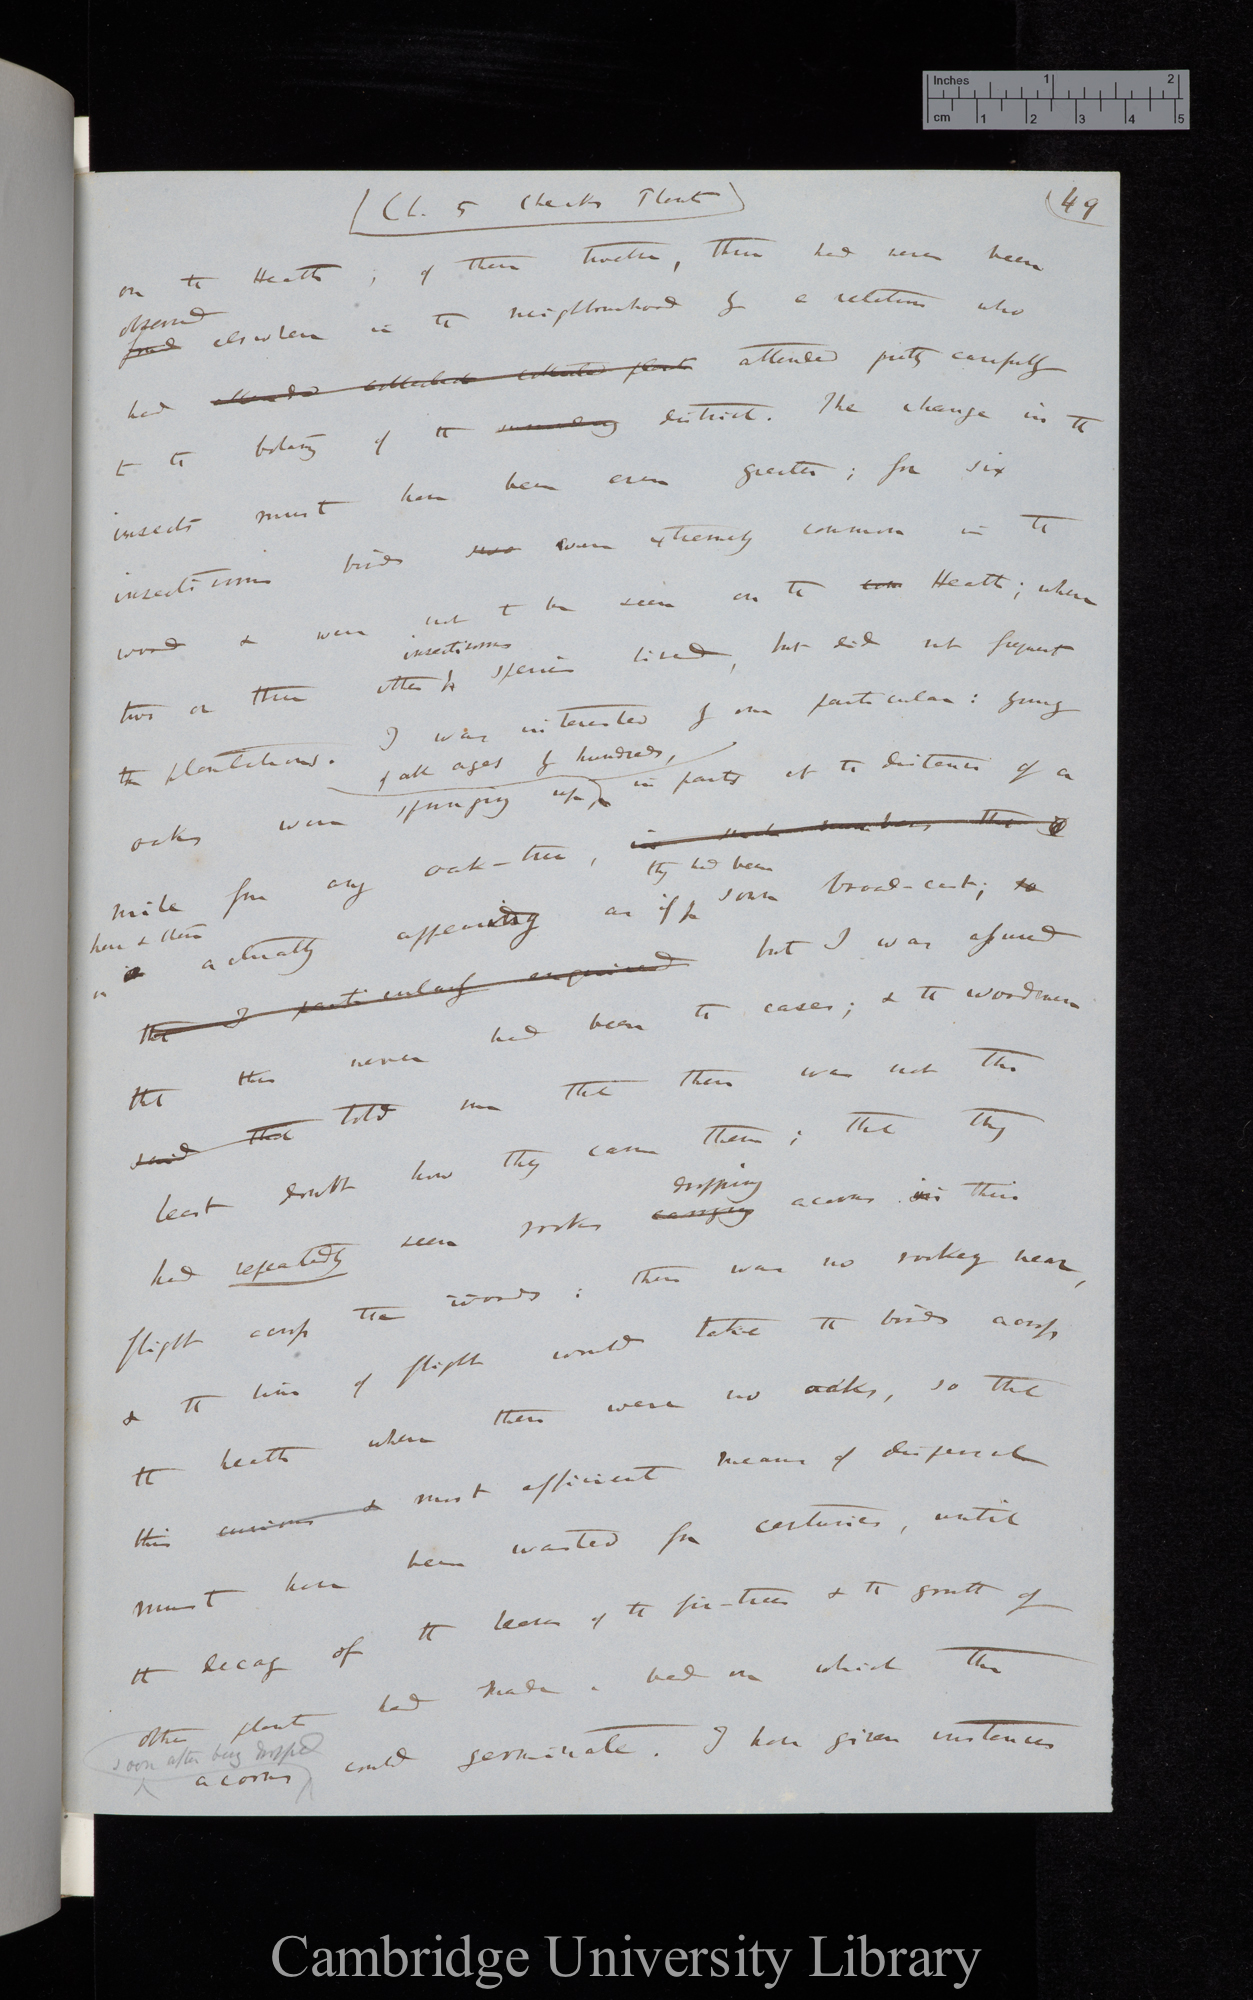 Inches 1 2
cm 1 2 3 4 5
(Ch. 5 Checks Plants)
49
on the Heath; of these twelve, three had never been
observed
found elsewhere in the neighbourhood by a relation who
had attended collected plants attended pretty carefully
to the botany of the surrounding district. The change in the
insects must have been even greater; for six
insectivorous birds were were extremely common in the
wood & were not to be seen on the Heath; where
insectivorous
two or three other species lived, but did not frequent
the plantations. I was interested by one particular: young
of all ages by hundreds,
oaks were springing up, in parts at the distance of a
mile from any oak-tree, in such numbers that
they had been
here & there
as actually appearing as if sown broad-cast; so
that I particularly enquired but I was assured
that this never had been the case; & the woodmen
said that told me that there was not the
least doubt how they came there; that they
dropping
had repeatedly seen rooks carrying acorns in their
flight across the woods: there was no rookery near,
& the line of flight would take the birds across
the heath where there were no oaks, so that
this curious & most efficient means of dispersal
must have been wasted for centuries, until
the decay of the leaves of the fir-trees & the growth of
other plants had made a bed on which the
soon after being dropped
acorns could germinate. I have given instances
Cambridge University Library